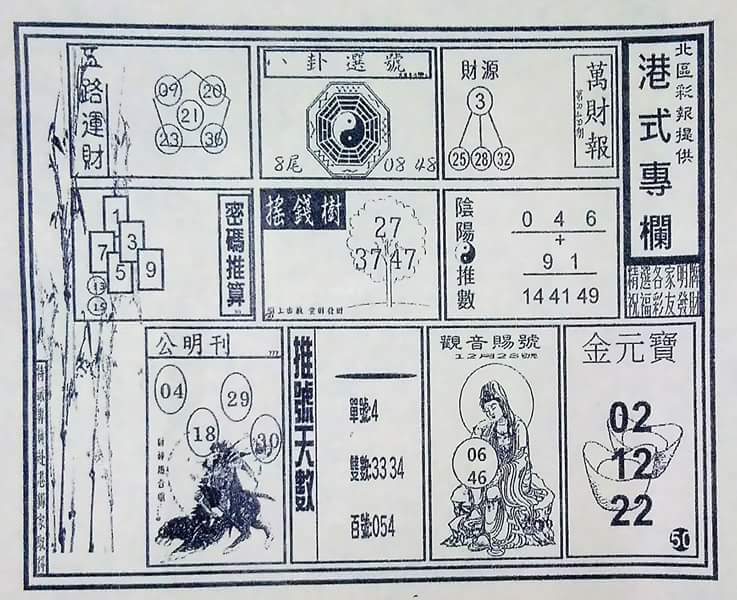 北區彩報提供
港式專欄
精選各家明牌
祝福彩友發財
萬財報
財源
3
25 28 32
八卦選號
8尾
08 48
五路運財
09 20
21
23 36
陰陽推數
0 4 6
+
9 1
14 41 49
搖錢樹
27
37 47
密碼推算
1
3
7
5 9
13
15
金元寶
02
12
22
50
觀音賜號
12月28號
06
46
推號天數
單號:4
雙數:33 34
百號:054
公明刊
04
29
18
30